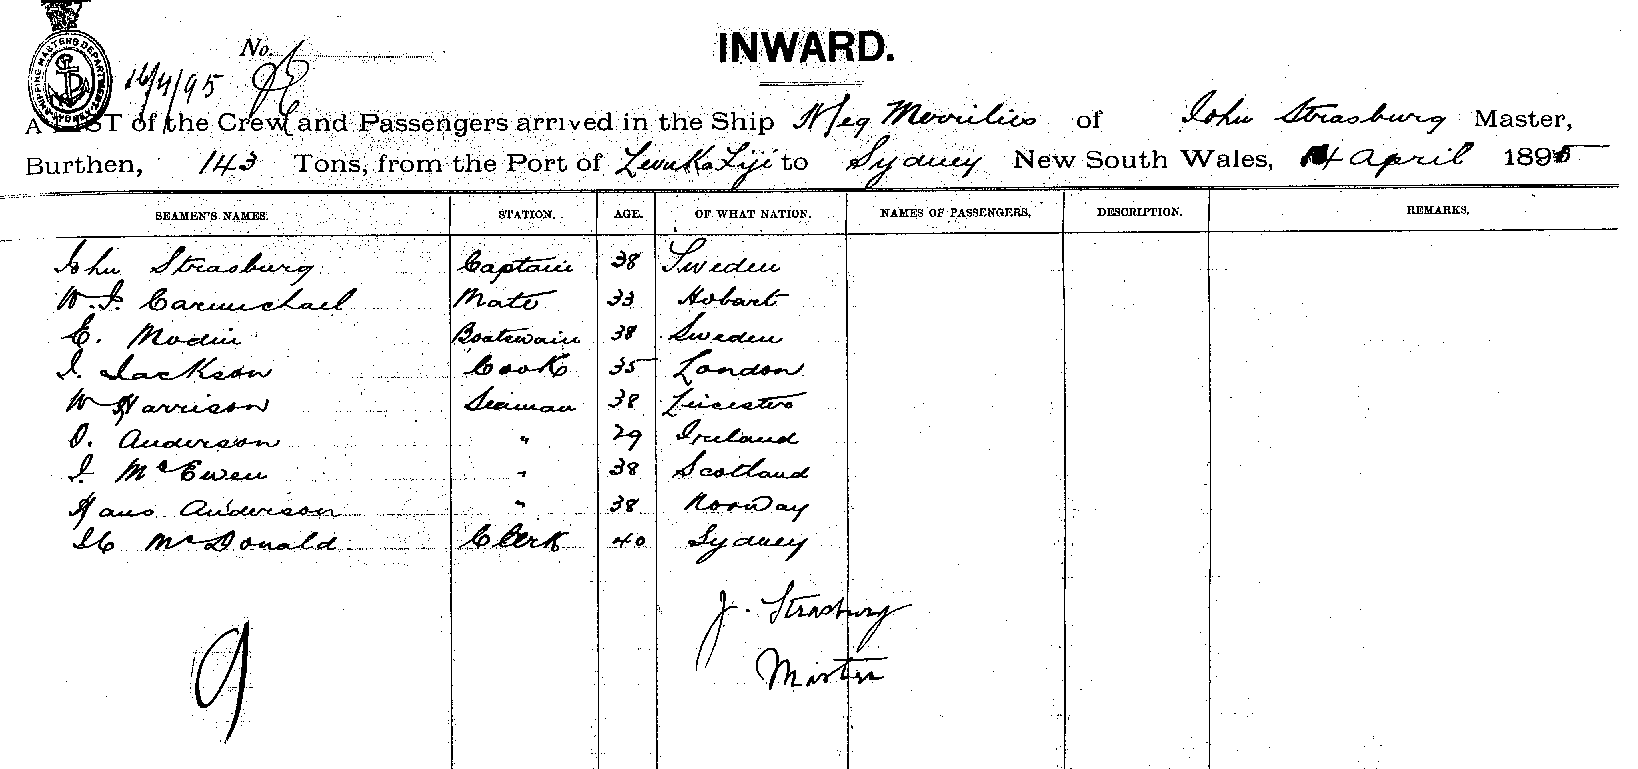 INWARD.
No.
16/4/95
A LIST of the Crew and Passengers arrived in the Ship Meg Merrilies of John Strasburg Master,
Burthen, 143 Tons, from the Port of Levuka Fiji to Sydney New South Wales, 14 April 1895
SEAMEN'S NAMES. STATION. AGE. OF WHAT NATION. NAMES OF PASSENGERS. DESCRIPTION. REMARKS.
John Strasburg Captain 38 Sweden
W. J. Carmichael Mate 33 Hobart
E. Modin Boatswain 38 Sweden
J. Jackson Cook 35 London
W Harrison Seaman 38 Liecester
O. Anderson " 29 Ireland
J. McEwen " 38 Scotland
Hans Anderson " 38 Norway
McDonald Clerk 40 Sydney
J. Strasburg
Master
9